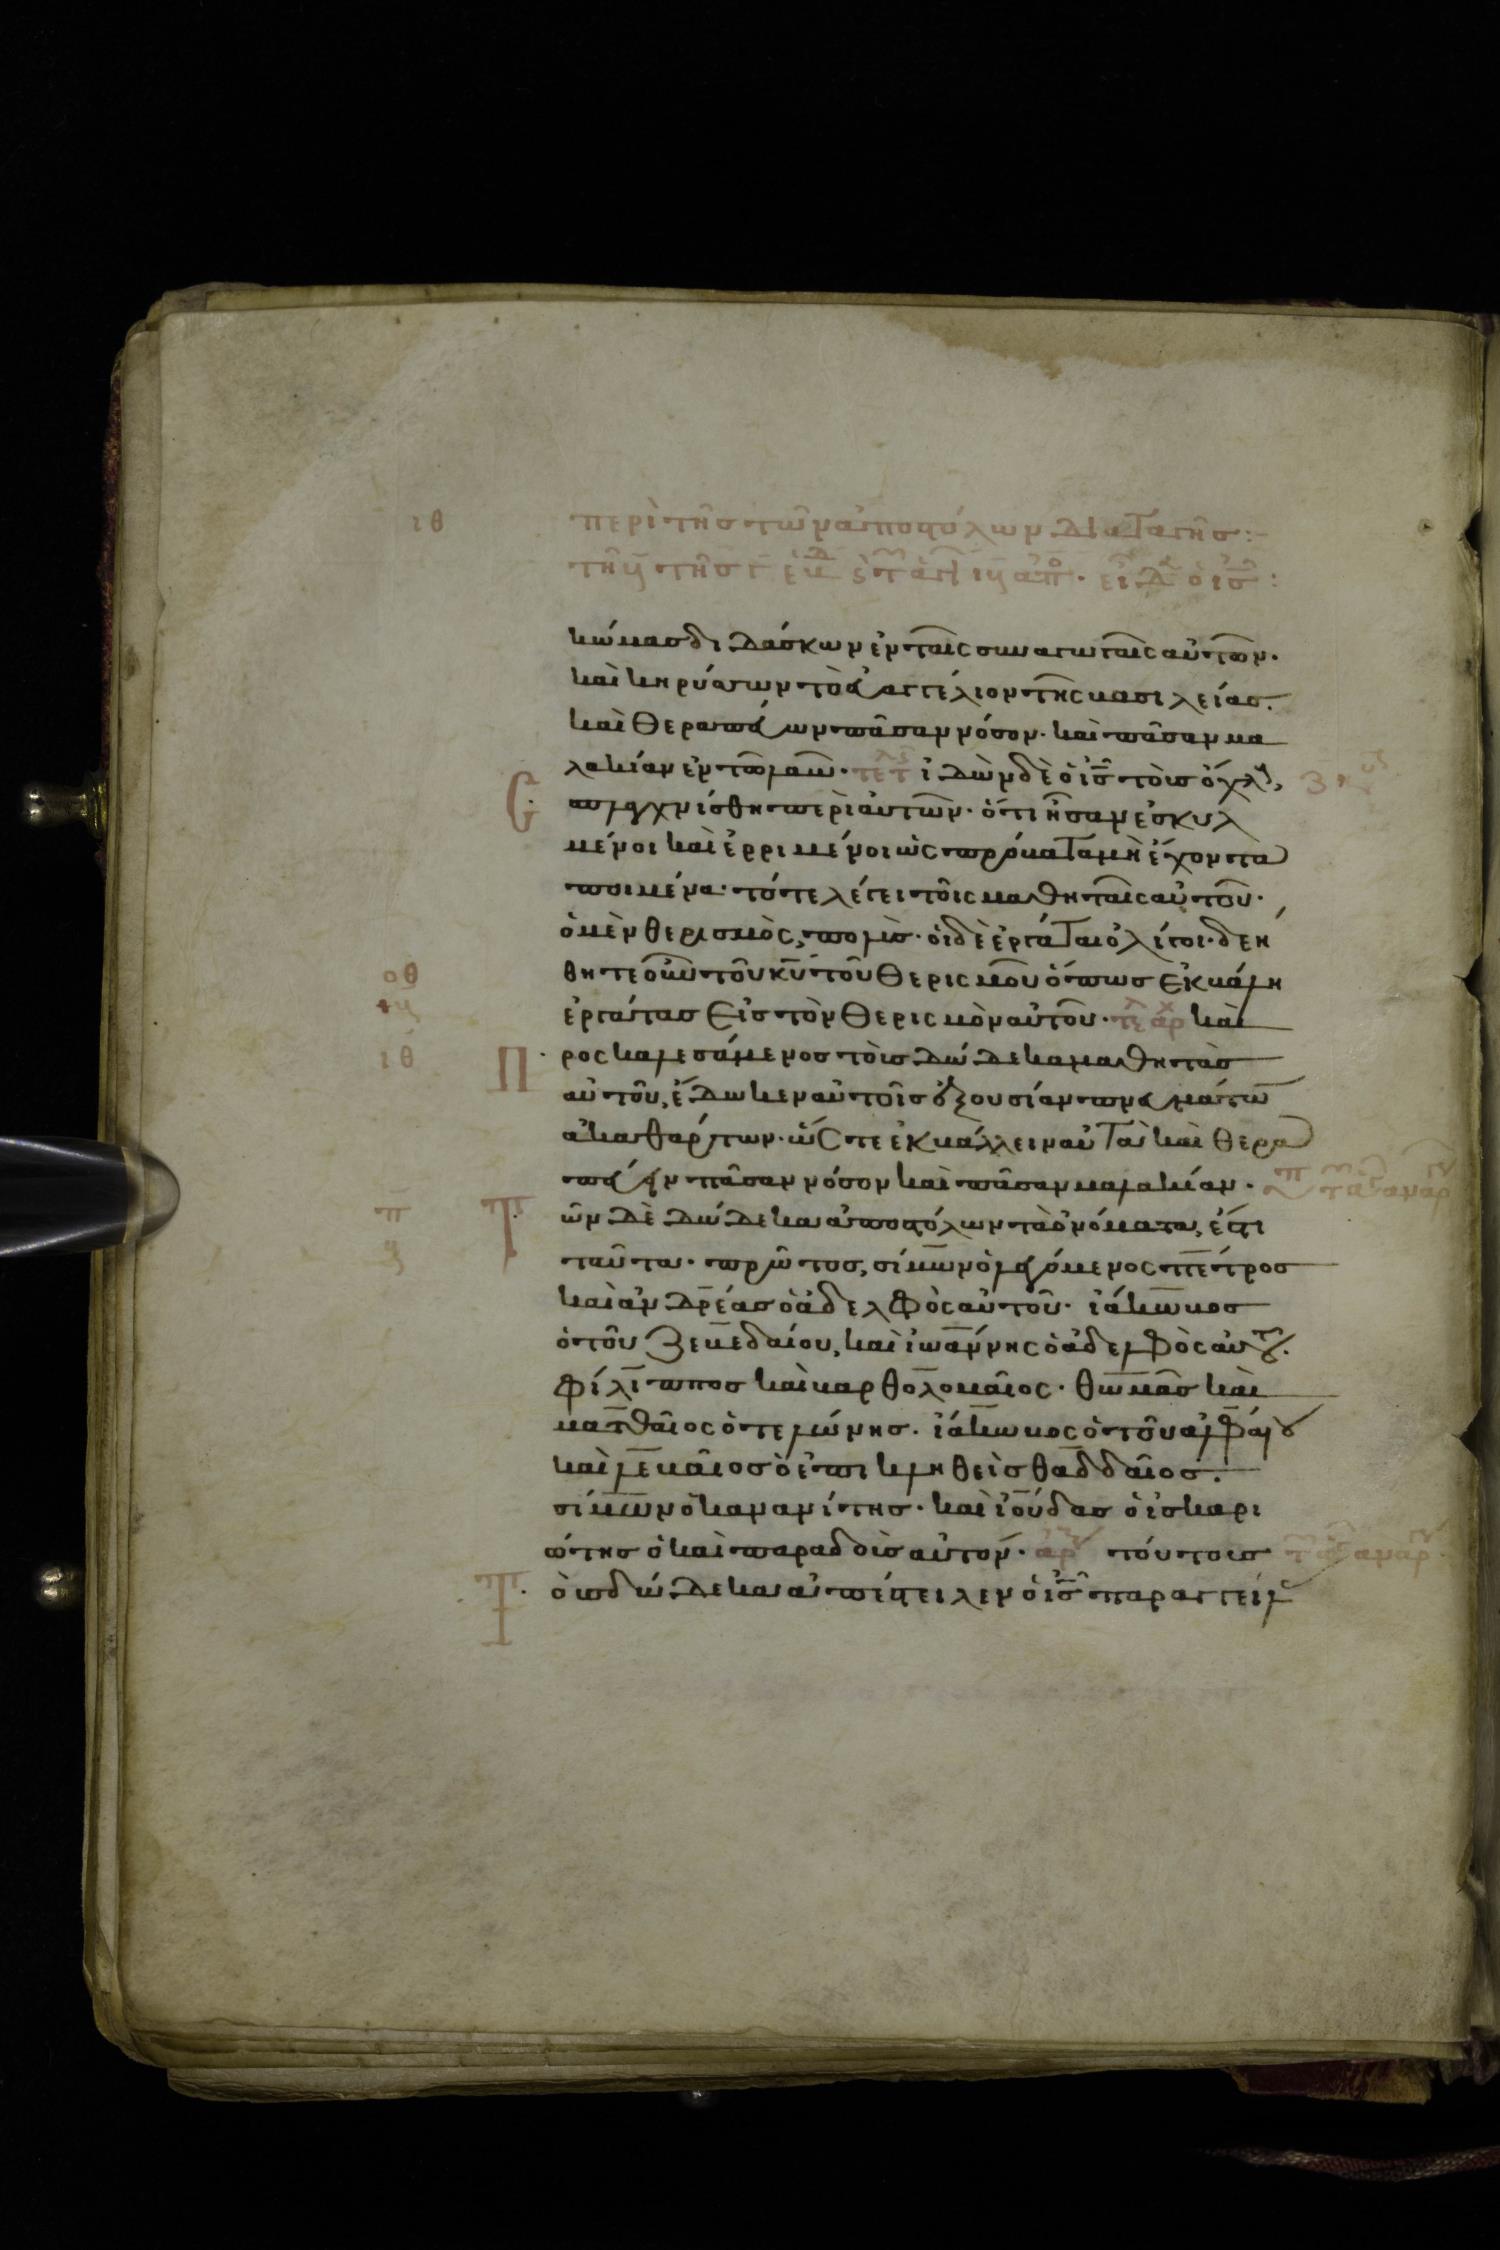 ιθ περὶ τῆς τῶν ἀποστόλων διαταγῆς:
κώμας διδάσκων ἐν ταῖς συναγωγαῖς αὐτῶν·
καὶ κηρύσσων τὸ εὐαγγέλιον τῆς βασιλείας.
καὶ θεραπεύων πᾶσαν νόσον· καὶ πᾶσαν μα
λακίαν ἐν τῶ λαῶ· ἰδὼν δὲ ὁ ις τοὺς ὄχλους,
ἐσπλαχνίσθη περὶ αὐτῶν· ὅτι ἦσαν ἐσκυλ
μένοι καὶ ἐρριμένοι ὡς πρόβατα μὴ ἔχοντα
ποιμένα· τότε λέγει τοῖς μαθηταῖς αὐτοῦ·
ὁ μὲν θερισμὸς, πολὺς· οἱ δὲ ἐργάται ὀλίγοι· δεή
οθ θητε οὖν τοῦ κυ τοῦ θερισμοῦ ὅπως ἐκβάλη
ἐργάτας εἰς τὸν θερισμὸν αὐτοῦ· καὶ
ιθ Προσκαλεσάμενος τοὺς δώδεκα μαθητὰς
αὐτοῦ, ἔδωκεν αὐτοῖς ἐξουσίαν πνευμάτων
ἀκαθάρτων· ὥστε ἐκβάλλειν αὐτὰ καὶ θερα
πεύειν πᾶσαν νόσον καὶ πᾶσαν μαλακίαν·
π Τῶν δὲ δώδεκα ἀποστόλων τὰ ὀνόματα, ἐστι
ταῦτα· πρῶτος, σίμων ὁ λεγόμενος πέτρος
καὶ ἀνδρέας ὁ ἀδελφὸς αὐτοῦ· ἰάκωβος
ὁ τοῦ ζεβεδαίου, καὶ ἰωάννης ὁ ἀδελφὸς αὐτοῦ.
φίλιππος καὶ βαρθολομαῖος· θωμᾶς καὶ
ματθαῖος ὁ τελώνης· ἰάκωβος ὁ τοῦ ἀλφαίου
καὶ λεβαῖος ὁ ἐπικληθεὶς θαδδαῖος·
σίμων ὁ κανανίτης· καὶ ἰούδας ὁ ἰσκαρι
ώτης ὁ καὶ παραδοὺς αὐτόν· τούτους
Τοὺς δώδεκα ἀπέστειλεν ὁ ις παραγγείλας